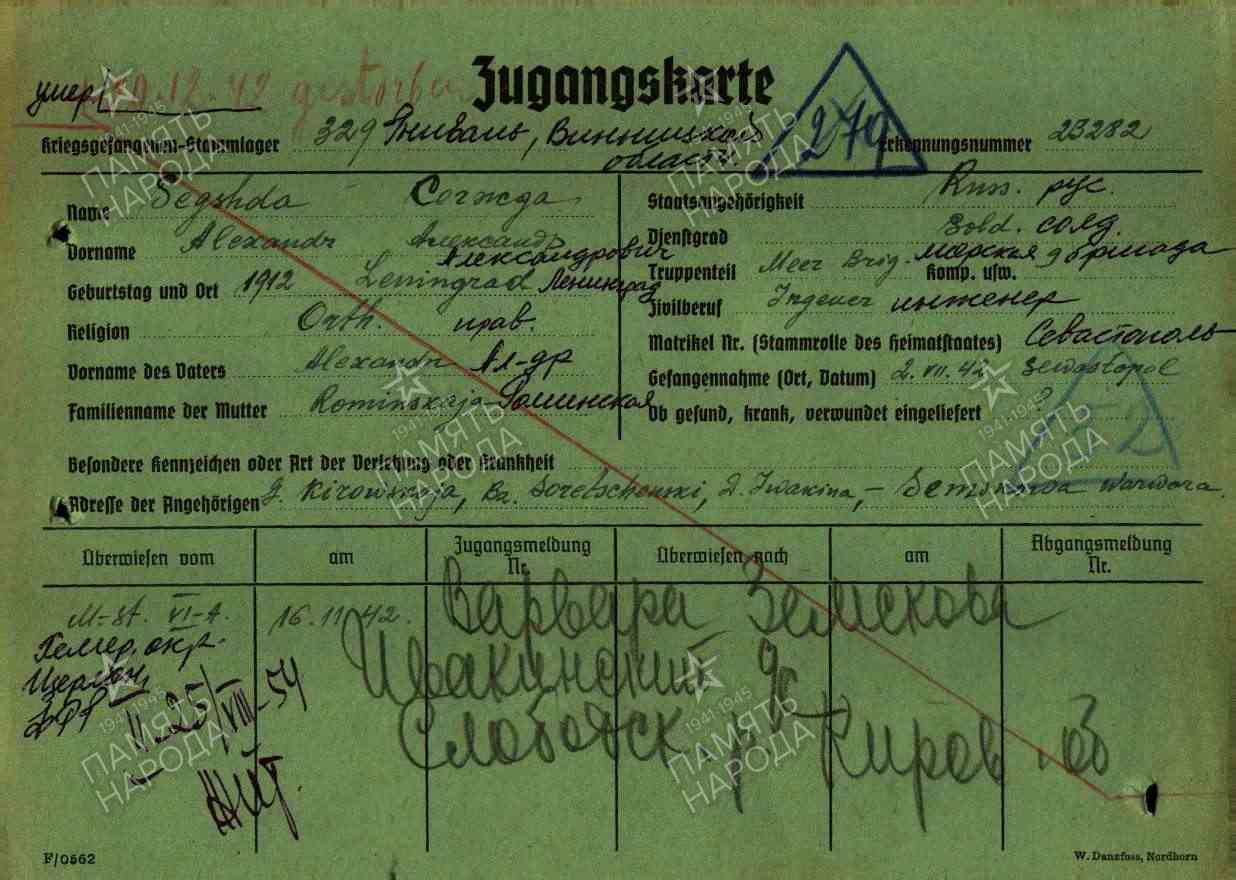 умер 9.12.42 gestorben
Zugangskarte
279
Kriegsgefangenen-Stammlager 329 Жмиваль, Винницкой
области
Erkennungsnummer 23282
Name Segshda Согжда
Vorname Alexandr Александр
Александрович
Geburtstag und Ort 1912 Leningrad Ленинград
Religion Orth. прав.
Vorname des Vaters Alexandr Ал-др
Familienname der Mutter Rominskaja-Роминская
Staatsangehörigkeit Russ. рус.
Dienstgrad Sold. солд.
Truppenteil Meer Brig. морская бригада
Komp. usw.
Zivilberuf Ingeuer инженер
Matrikel Nr. (Stammrolle des Heimatstaates) Севастополь
Gefangennahme (Ort, Datum) 2. VII. 42 Sewastopol
Ob gesund, krank, verwundet eingeliefert ?
Besondere Kennzeichen oder Art der Verletzung oder Krankheit
Adresse der Angehörigen g. Kirowskaja, D. Iwakina, - Semskowa Warwara.
Überwiesen vom
am
Zugangsmeldung
Nr.
Überwiesen nach
am
Abgangsmeldung
Nr.
M-St. VI-A. 16. 11. 42.
Гемер. окр.
Варвара Земскова
Ивакинский
Слободск р Киров об
II-25/VIII-54
F/0562
W. Danzfuss, Nordhorn
ПАМЯТЬ
НАРОДА
1941-1945